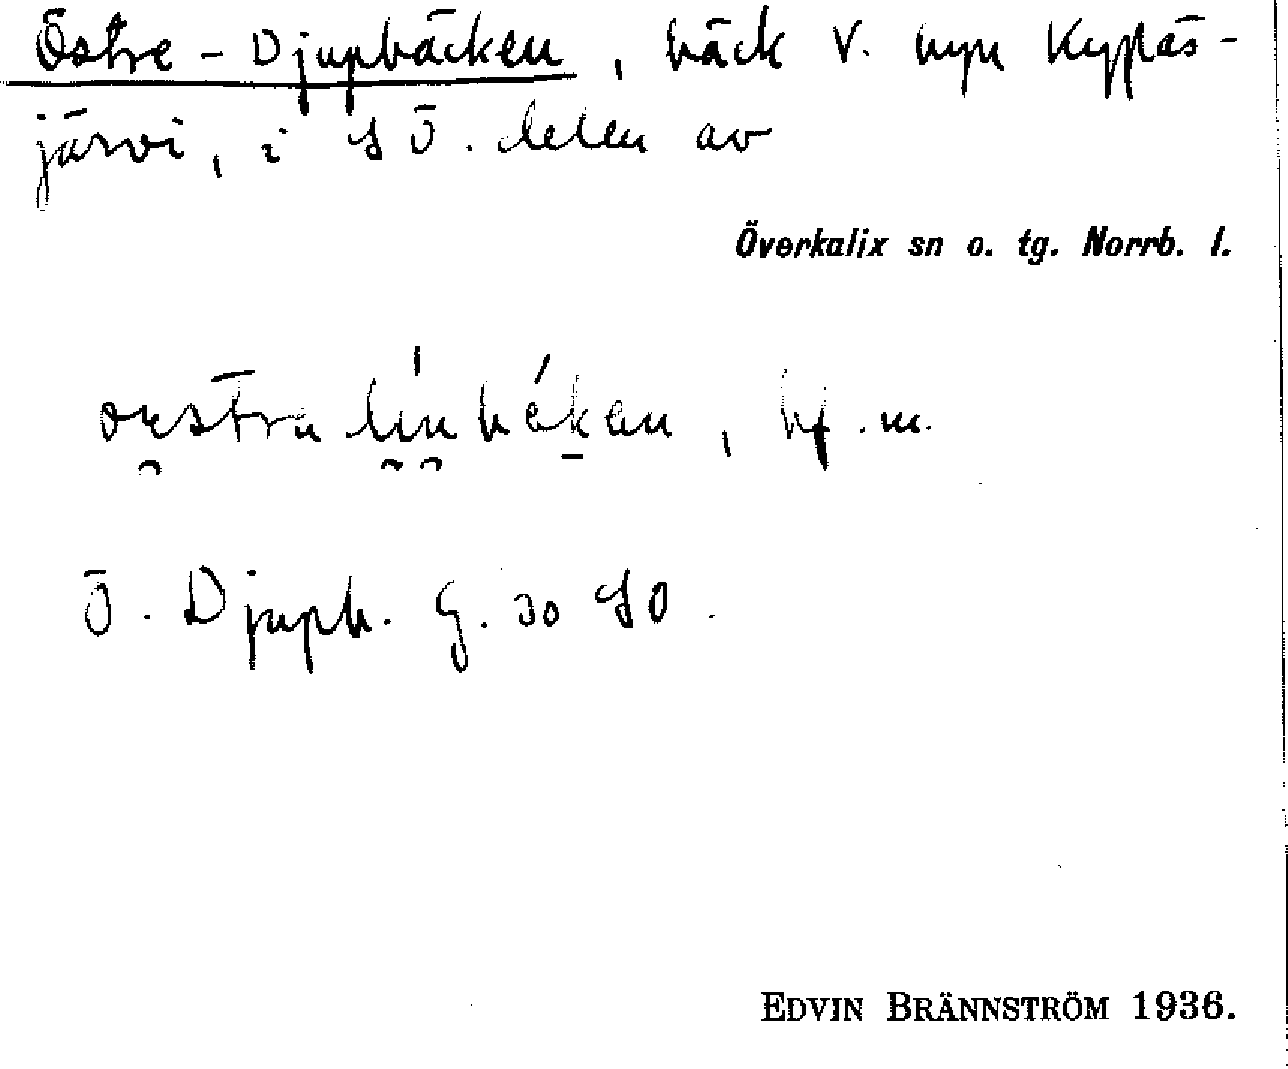 Östre-Djupbäcken, bäck V. byn Kypás-
järvi, i SÖ. delen av
Överkalix sn o. tg. Norrb. l.
bf. m.
Ö. Djupb. G. 30 SO.
EDVIN BRÄNNSTRÖM 1936.